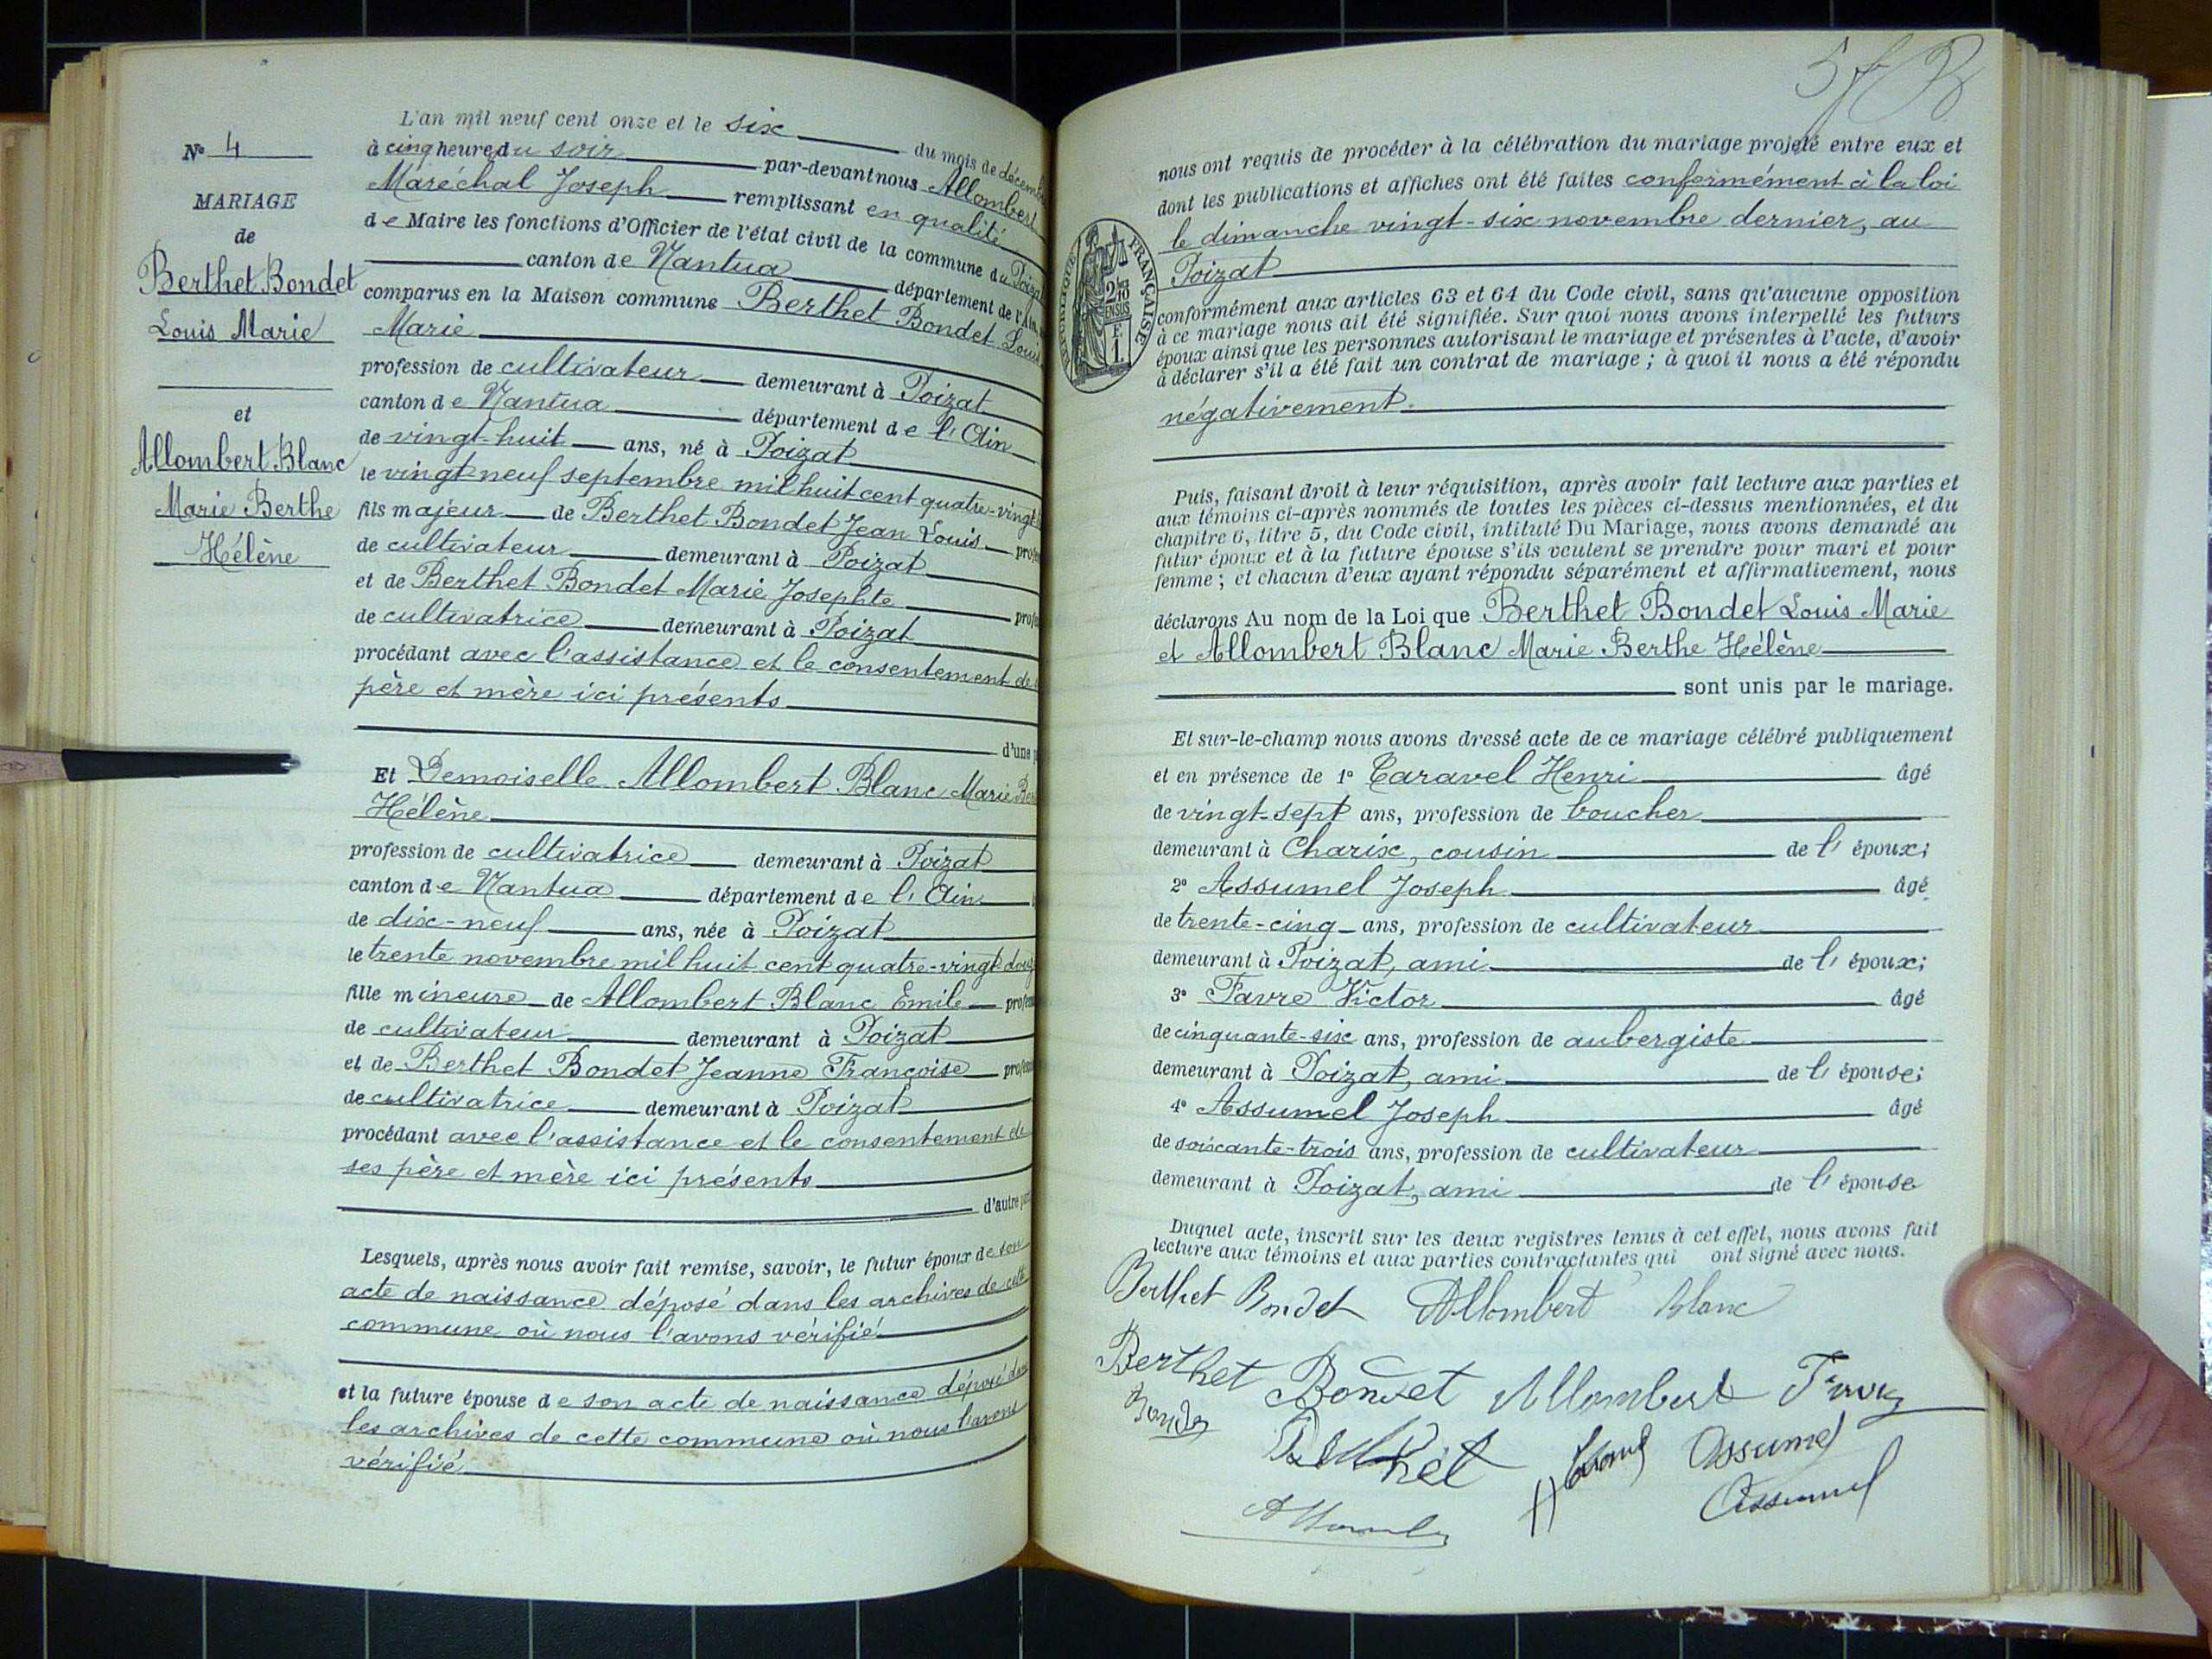 N° 4
MARIAGE
de
Berthet Bondet
Louis Marie
et
Allombert Blanc
Marie Berthe
Hélène
L'an mil neuf cent onze et le six du mois de décem
à cinq heure du soir par-devant nous Allombert
Maréchal Joseph remplissant en qualité
de Maire les fonctions d'Officier de l'état civil de la commune du Poizat
canton de Nantua département de l'Ain,
comparus en la Maison commune Berthet Bondet Louis
Marie
profession de cultivateur demeurant à Poizat
canton de Nantua département de l'Ain
de vingt-huit ans, né à Poizat
le vingt-neuf septembre mil huit cent quatre-vingt
fils majeur de Berthet Bondet Jean Louis
de cultivateur demeurant à Poizat
et de Berthet Bondet Marie Josephte
de cultivatrice demeurant à Poizat
procédant avec l'assistance et le consentement de
père et mère ici présents
d'une
Et Demoiselle Allombert Blanc Marie
Hélène
profession de cultivatrice demeurant à Poizat
canton de Nantua département de l'Ain
de dix-neuf ans, née à Poizat
le trente novembre mil huit cent quatre-vingt douz
fille mineure de Allombert Blanc Emile
de cultivateur demeurant à Poizat
et de Berthet Bondet Jeanne Françoise
de cultivatrice demeurant à Poizat
procédant avec l'assistance et le consentement de
ses père et mère ici présents
d'autre
Lesquels, après nous avoir fait remise, savoir, le futur époux de son
acte de naissance déposé dans les archives de cette
commune où nous l'avons vérifié
et la future épouse de son acte de naissance déposé dans
les archives de cette commune où nous l'avons
vérifié
nous ont requis de procéder à la célébration du mariage projeté entre eux et
dont les publications et affiches ont été faites conformément à la loi
le dimanche vingt-six novembre dernier, au
Poizat
RÉPUBLIQUE FRANÇAISE
conformément aux articles 63 et 64 du Code civil, sans qu'aucune opposition
à ce mariage nous ait été signifiée. Sur quoi nous avons interpellé les futurs
époux ainsi que les personnes autorisant le mariage et présentes à l'acte, d'avoir
à déclarer s'il a été fait un contrat de mariage ; à quoi il nous a été répondu
négativement.
Puis, faisant droit à leur réquisition, après avoir fait lecture aux parties et
aux témoins ci-après nommés de toutes les pièces ci-dessus mentionnées, et du
chapitre 6, titre 5, du Code civil, intitulé Du Mariage, nous avons demandé au
futur époux et à la future épouse s'ils veulent se prendre pour mari et pour
femme ; et chacun d'eux ayant répondu séparément et affirmativement, nous
déclarons Au nom de la Loi que Berthet Bondet Louis Marie
et Allombert Blanc Marie Berthe Hélène
sont unis par le mariage.
Et sur-le-champ nous avons dressé acte de ce mariage célébré publiquement
et en présence de 1° Caravel Henri âgé
de vingt-sept ans, profession de boucher
demeurant à Charix, cousin de l' époux;
2° Assumel Joseph âgé
de trente-cinq ans, profession de cultivateur
demeurant à Poizat, ami de l' époux;
3° Favre Victor âgé
de cinquante-six ans, profession de aubergiste
demeurant à Poizat, ami de l' épouse;
4° Assumel Joseph âgé
de soixante-trois ans, profession de cultivateur
demeurant à Poizat, ami de l' épouse
Duquel acte, inscrit sur les deux registres tenus à cet effet, nous avons fait
lecture aux témoins et aux parties contractantes qui ont signé avec nous.
Berthet Bondet Allombert Blanc
Berthet Bondet Allombert
Berthet Assumel
Assumel